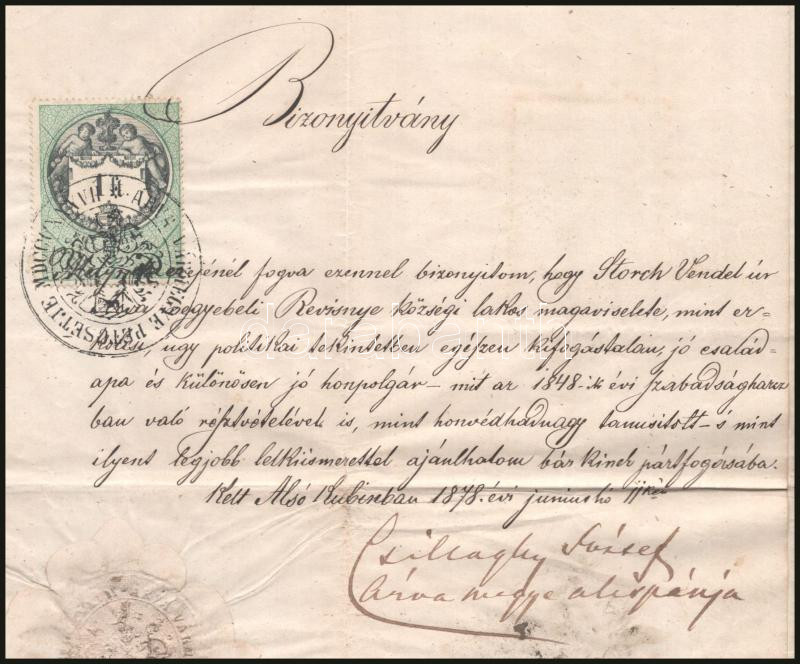 Bizonyitvány
1 ft
erejénél fogva ezennel bizonyitom, hogy Storch Vendel úr
Árva megyebeli Revisnye községi lakos magaviselete, mint er-
kölcsi, úgy politikai tekintetben egészen kifogástalan, jó család-
apa és különösen jó honpolgár – mit az 1848-ik évi szabadságharcz
ban való résztvételével is, mint honvédhadnagy tanusitott – s mint
ilyent legjobb lelkiismerettel ajánlhatom bár kinek pártfogásába.
Kelt Alsó Kubinban 1878. évi junius hó 11kén
Csillaghy József
Árva megye alispánja